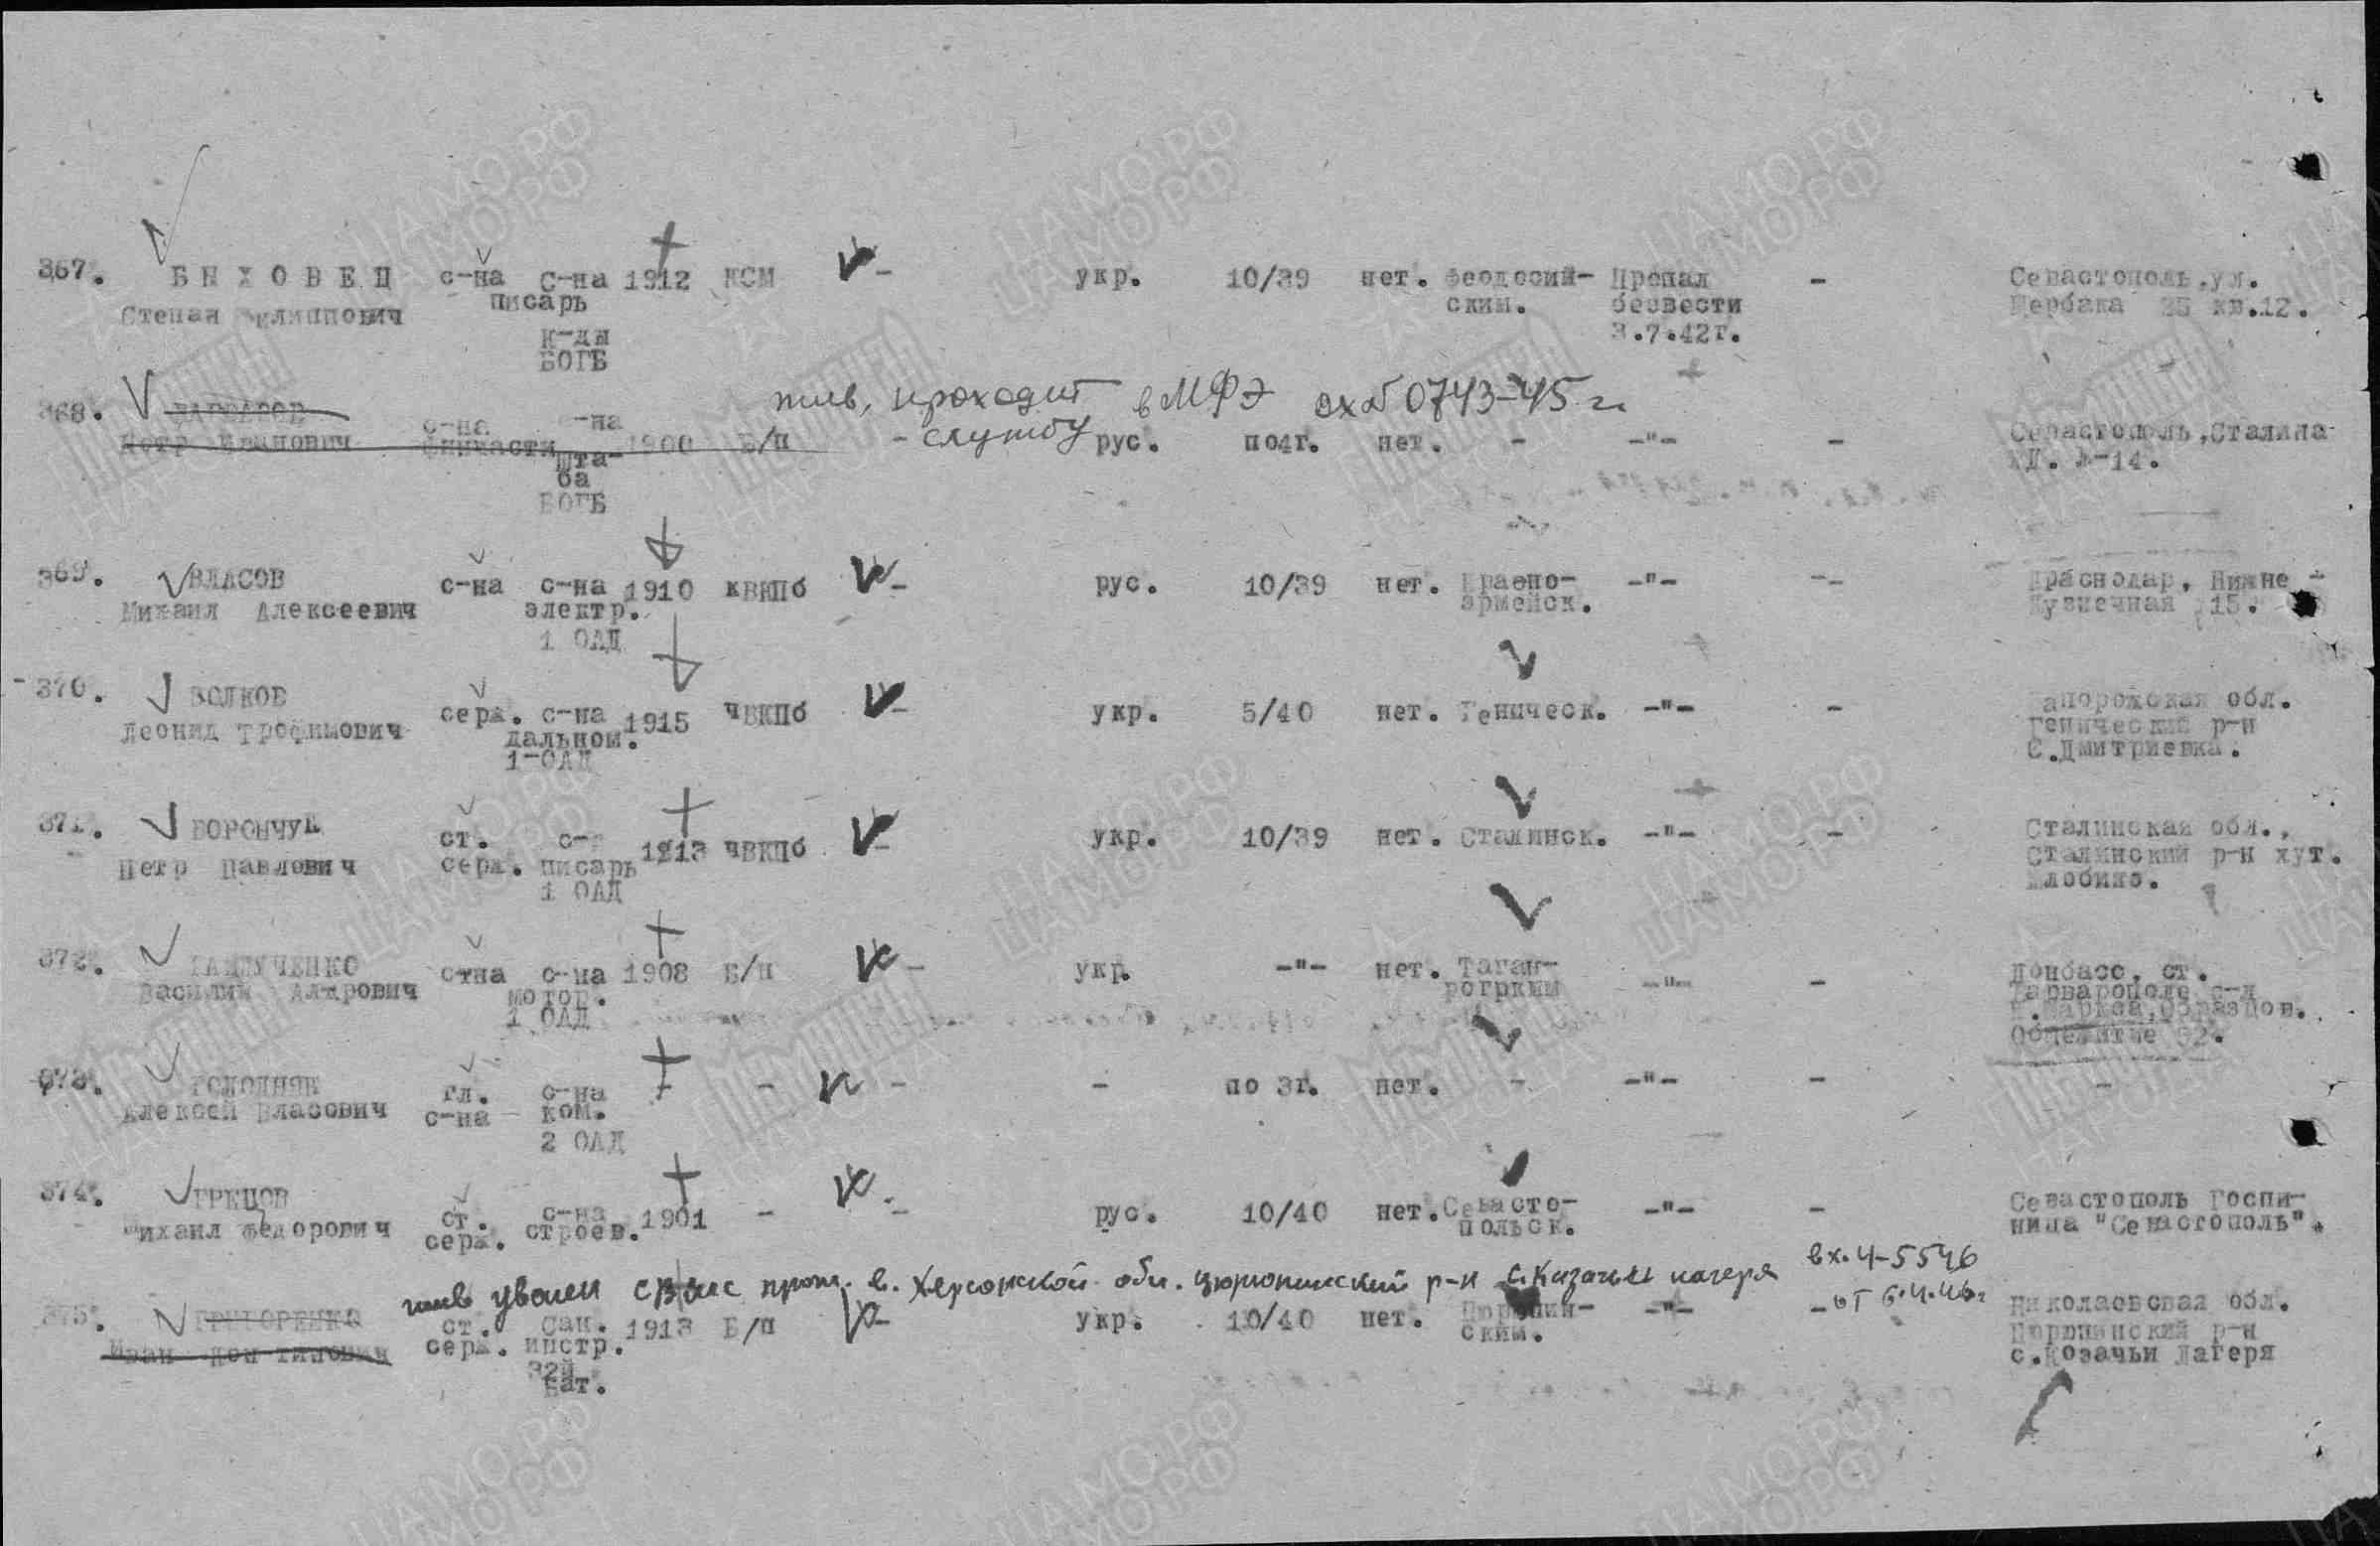 367. БЫХОВЕЦ с-на с-на 1912 КСМ - укр. 10/39 нет. Феодосий- Пропал - Севастополь, ул.
Степан Филиппович писарь ским. безвести Щербака 35 кв.12.
к-ды 3.7.42г.
БОГБ
жив, проходит в МФЭ 0743-45 г.
368. Петр Иванович с-на -на 1900 Б/п - службу рус. по4г. нет. - -"- - Севастополь, Сталина
финчасти шта- 14.
ба
БОГБ
369. ВЛАСОВ с-на с-на 1910 кВКПб - рус. 10/39 нет. Красно- -"- -- Краснодар, Нижне -
Михаил Алексеевич электр. армейск. Кузнечная 15.
1 ОАД
370. ВОЛКОВ серж. с-на 1915 чВКПб - укр. 5/40 нет. Геническ. -"- - Запорожская обл.
Леонид Трофимович дальном. Генический р-н
1-ОАД С.Дмитриевка.
371. ВОРОНЧУК ст. с- 1913 чВКПб - укр. 10/39 нет. Сталинск. -"- - Сталинская обл.,
Петр Павлович серж. писарь Сталинский р-н хут.
1 ОАД
372. с-на 1908 Б/п - укр. -"- нет. Таган- -"- - Донбасс, ст.
Василий мотор. рогрким Варварополе
1 ОАД К.Маркса, Образцов.
Общежитие 52.
373. ГОЛОДНЯК гл. с-на - - - - по 3г. нет. - -"- - -
Алексей Власович с-на ком.
2 ОАД
374. ГРЕЦОВ ст. с-на 1901 - - рус. 10/40 нет. Севасто- -"- - Севастополь Гости-
Михаил Федорович серж. строев. польск. ница "Севастополь".
жив уволен прож. в. Херсонской обл. Цюрюпинский р-н с.Казачьи лагеря вх.4-5546
от 6.4.46г
375. ГРИГОРЕНКО ст. Сан. 1913 Б/п - укр. 10/40 нет. Цюрюпин- -"- - Николаевсвая обл.
Иван серж. инстр. ским. Цюрюпинский р-н
32й с.Козачьи Лагеря
Бат.